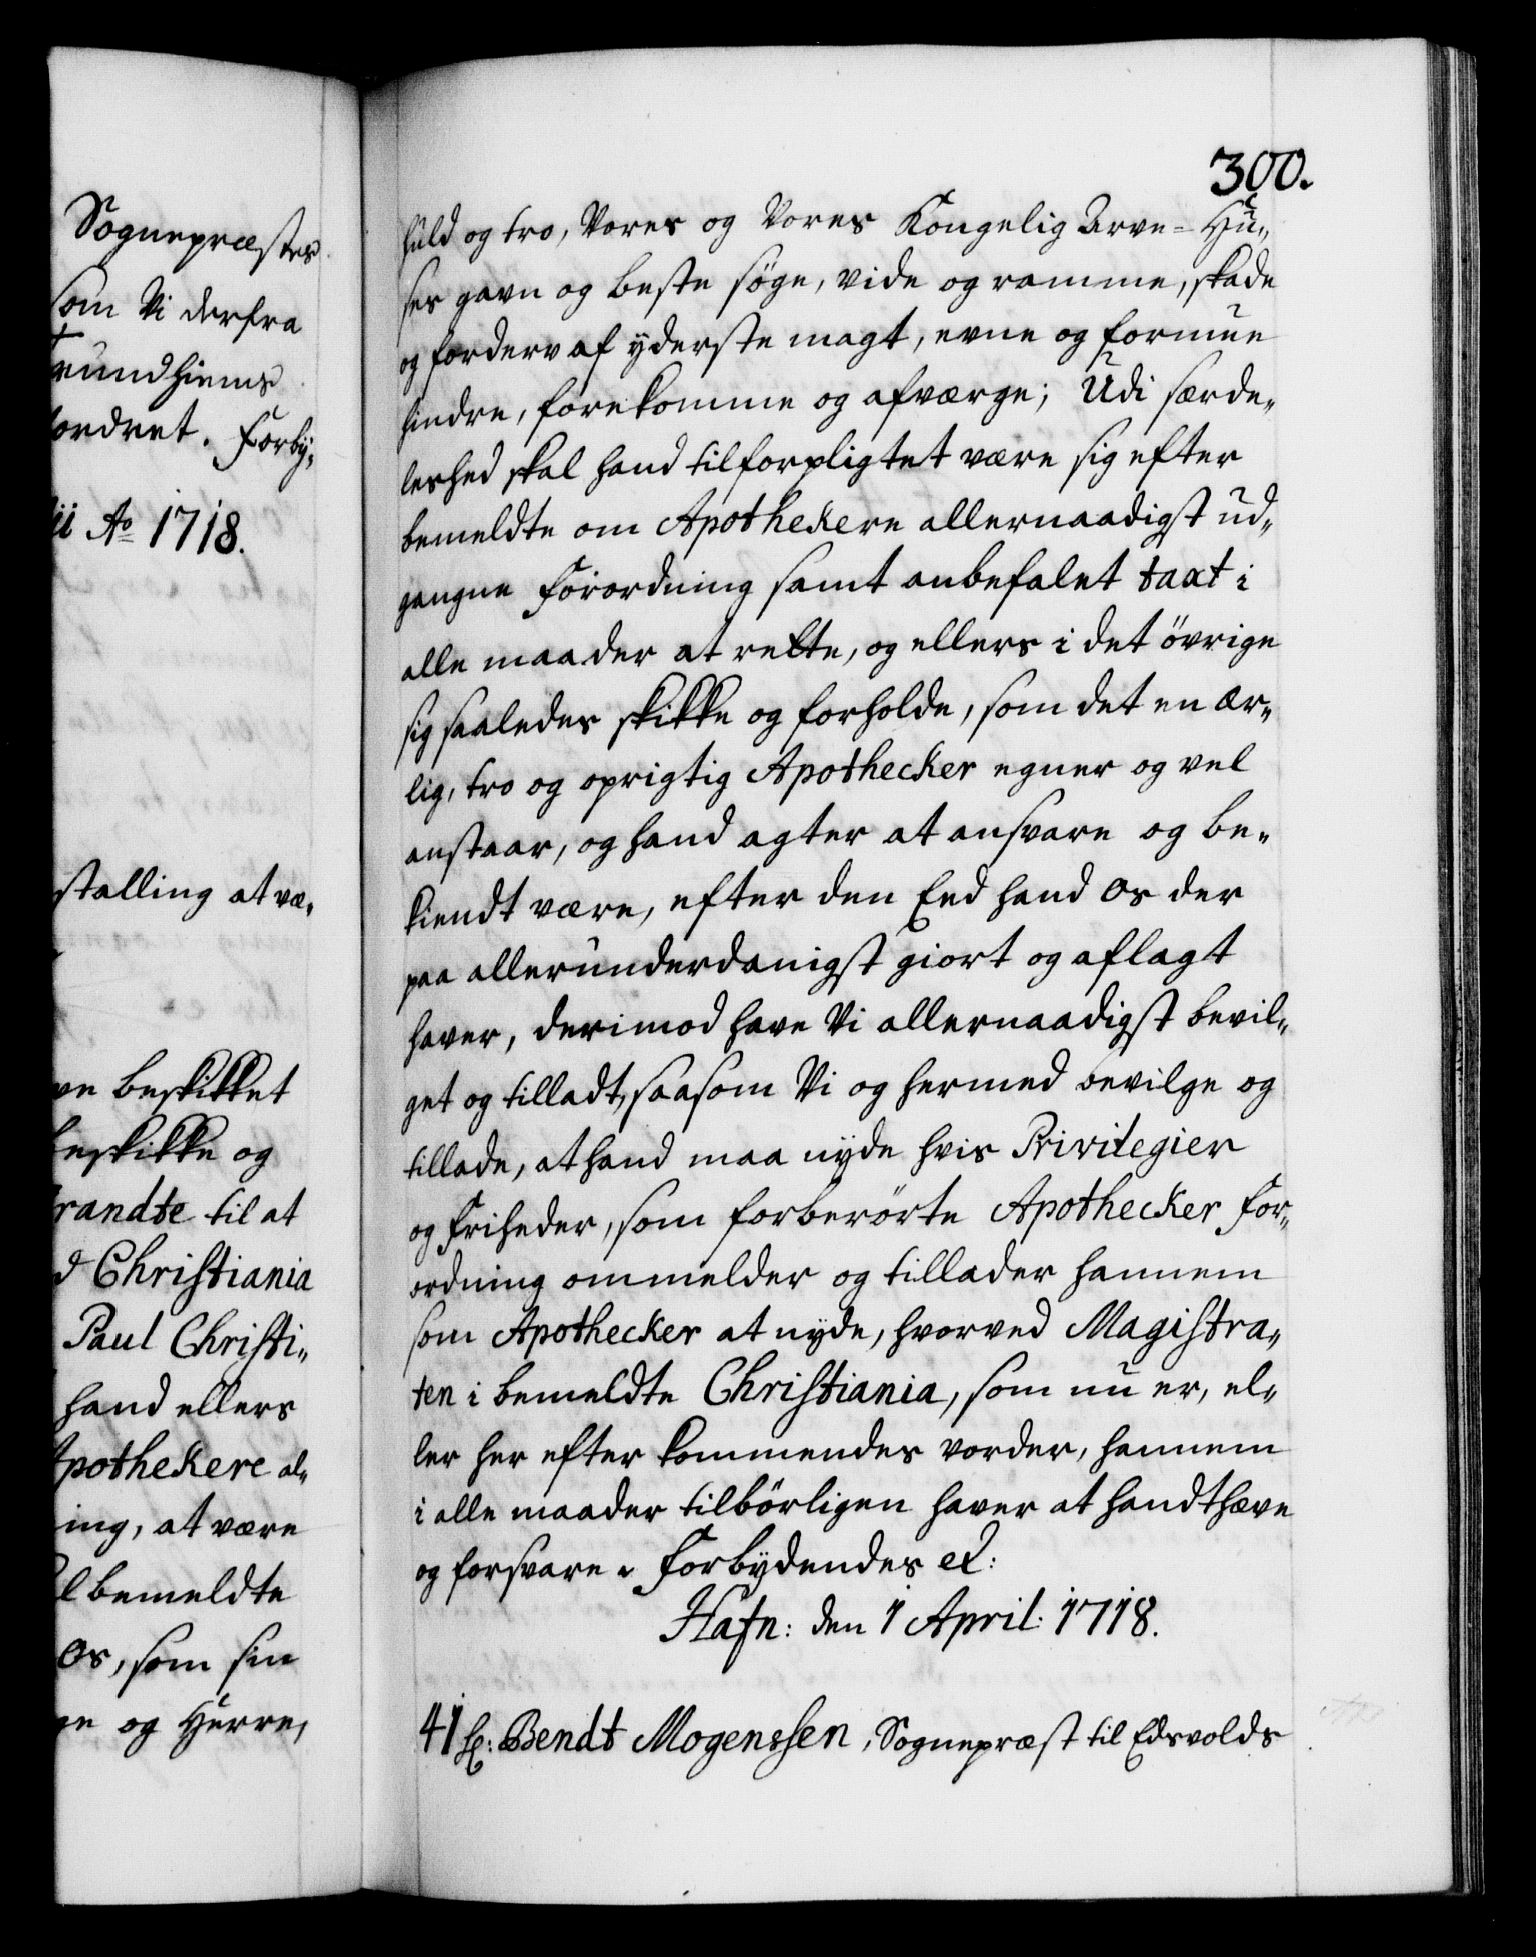 Sognepræstes
som Vi derfra
rundhiems
ordret. Forby„
ii Ao 1718.
stalling at væ„
ve beskikket
beskikke og
randte til at
d Christiania
Paul Christi„
hand ellers
Apothekere al„
ing, at være
l bemeldte
Os, som sin
ge og Herre,
300.
huld og tro, Vores og Vores Kongelig Arve-Hu„
ses gavn og beste søge, vide og ramme, skade
og forderv af yderste magt, evne og formue
hindre, forekomme og afværge; Udi særde„
leshed skal hand tilforpligtet være sig efter
bemeldte om Apothekere allernaadigst ud„
gangne Forordning samt anbefalet taxt i
alle maader at rette, og ellers i det övrige
sig saaledes skikke og forholde, som det en ær„
lig, tro og oprigtig Apothecker egner og vel
anstaar, og hand agter at ansvare og be„
kiendt være, efter den Eed hand Os der
paa allerunderdanigst giort og aflagt
haver, derimod have Vi allernaadigst bevil„
get og tilladt, saasom Vi og hermed bevilge og
tillade, at hand maa nyde hvis Privilegier
og Friheder, som forberörte Apothecker For„
ordning ommelder og tillader hannem
som Apothecker at nyde, hvorved Magistra„
ten i bemeldte Christiania, som nu er, el„
ler her efter kommendes vorder, hannem
i alle maader tilbörligen haver at handthæve
og forsvare. Forbydendes etc:
Hafn: den 1 April. 1718.
41 Hr: Bendt Mogenssen, Sognepræst til Edsvolds